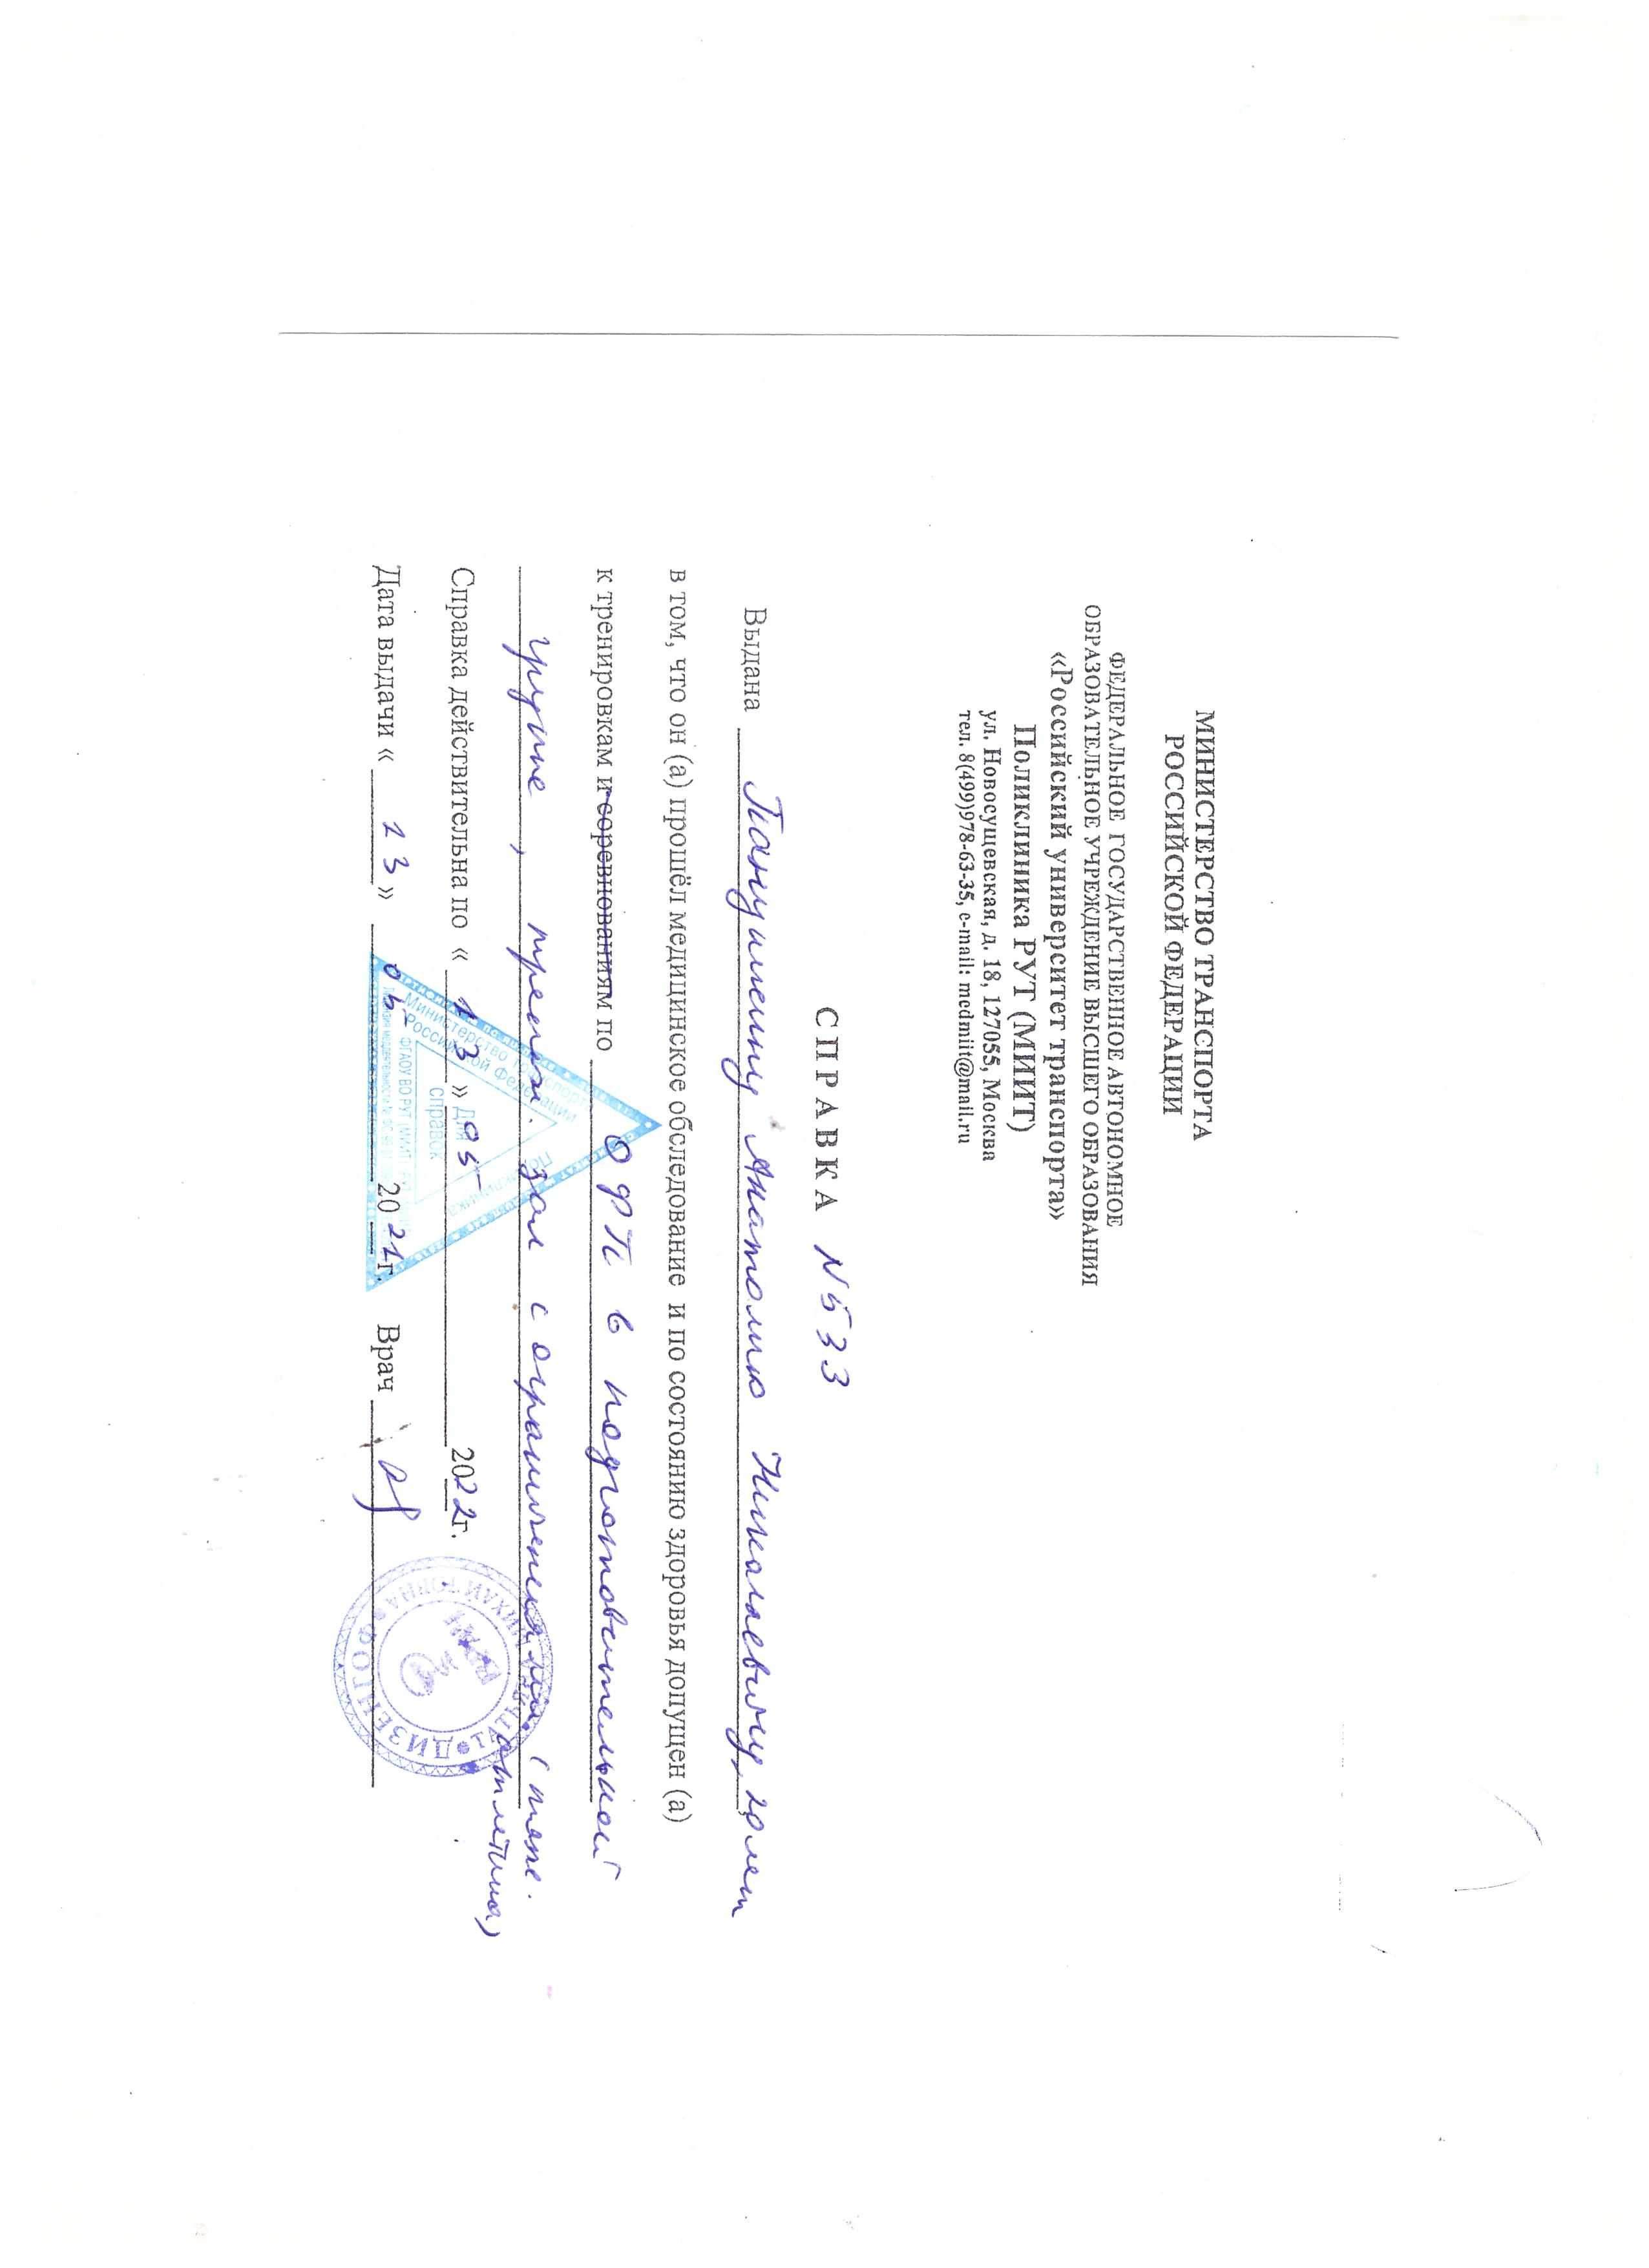 МИНИСТЕРСТВО ТРАНСПОРТА
РОССИЙСКОЙ ФЕДЕРАЦИИ
ФЕДЕРАЛЬНОЕ ГОСУДАРСТВЕННОЕ АВТОНОМНОЕ
ОБРАЗОВАТЕЛЬНОЕ УЧРЕЖДЕНИЕ ВЫСШЕГО ОБРАЗОВАНИЯ
«Российский университет транспорта»
Поликлиника РУТ (МИИТ)
ул. Новосущевская, д. 18, 127055, Москва
тел. 8(499)978-63-35, e-mail: medmiit@mail.ru
СПРАВКА N 533
Выдана Панушкину Анатолию Николаевичу, 20 лет
в том, что он (а) прошёл медицинское обследование и по состоянию здоровья допущен (а)
к тренировкам и соревнованиям по ОФП в подготовительной
группе, тренаж. зал с ограничениями (тяж.
атлетика)
Справка действительна по «13» 05 2022г.
Дата выдачи «13» 05 2021г. Врач
Министерство транспорта
Российской Федерации
Поликлиника
Для
справок
ФГАОУ ВО РУТ (МИИТ)
ДИЗЕНГОФ
ВРАЧ